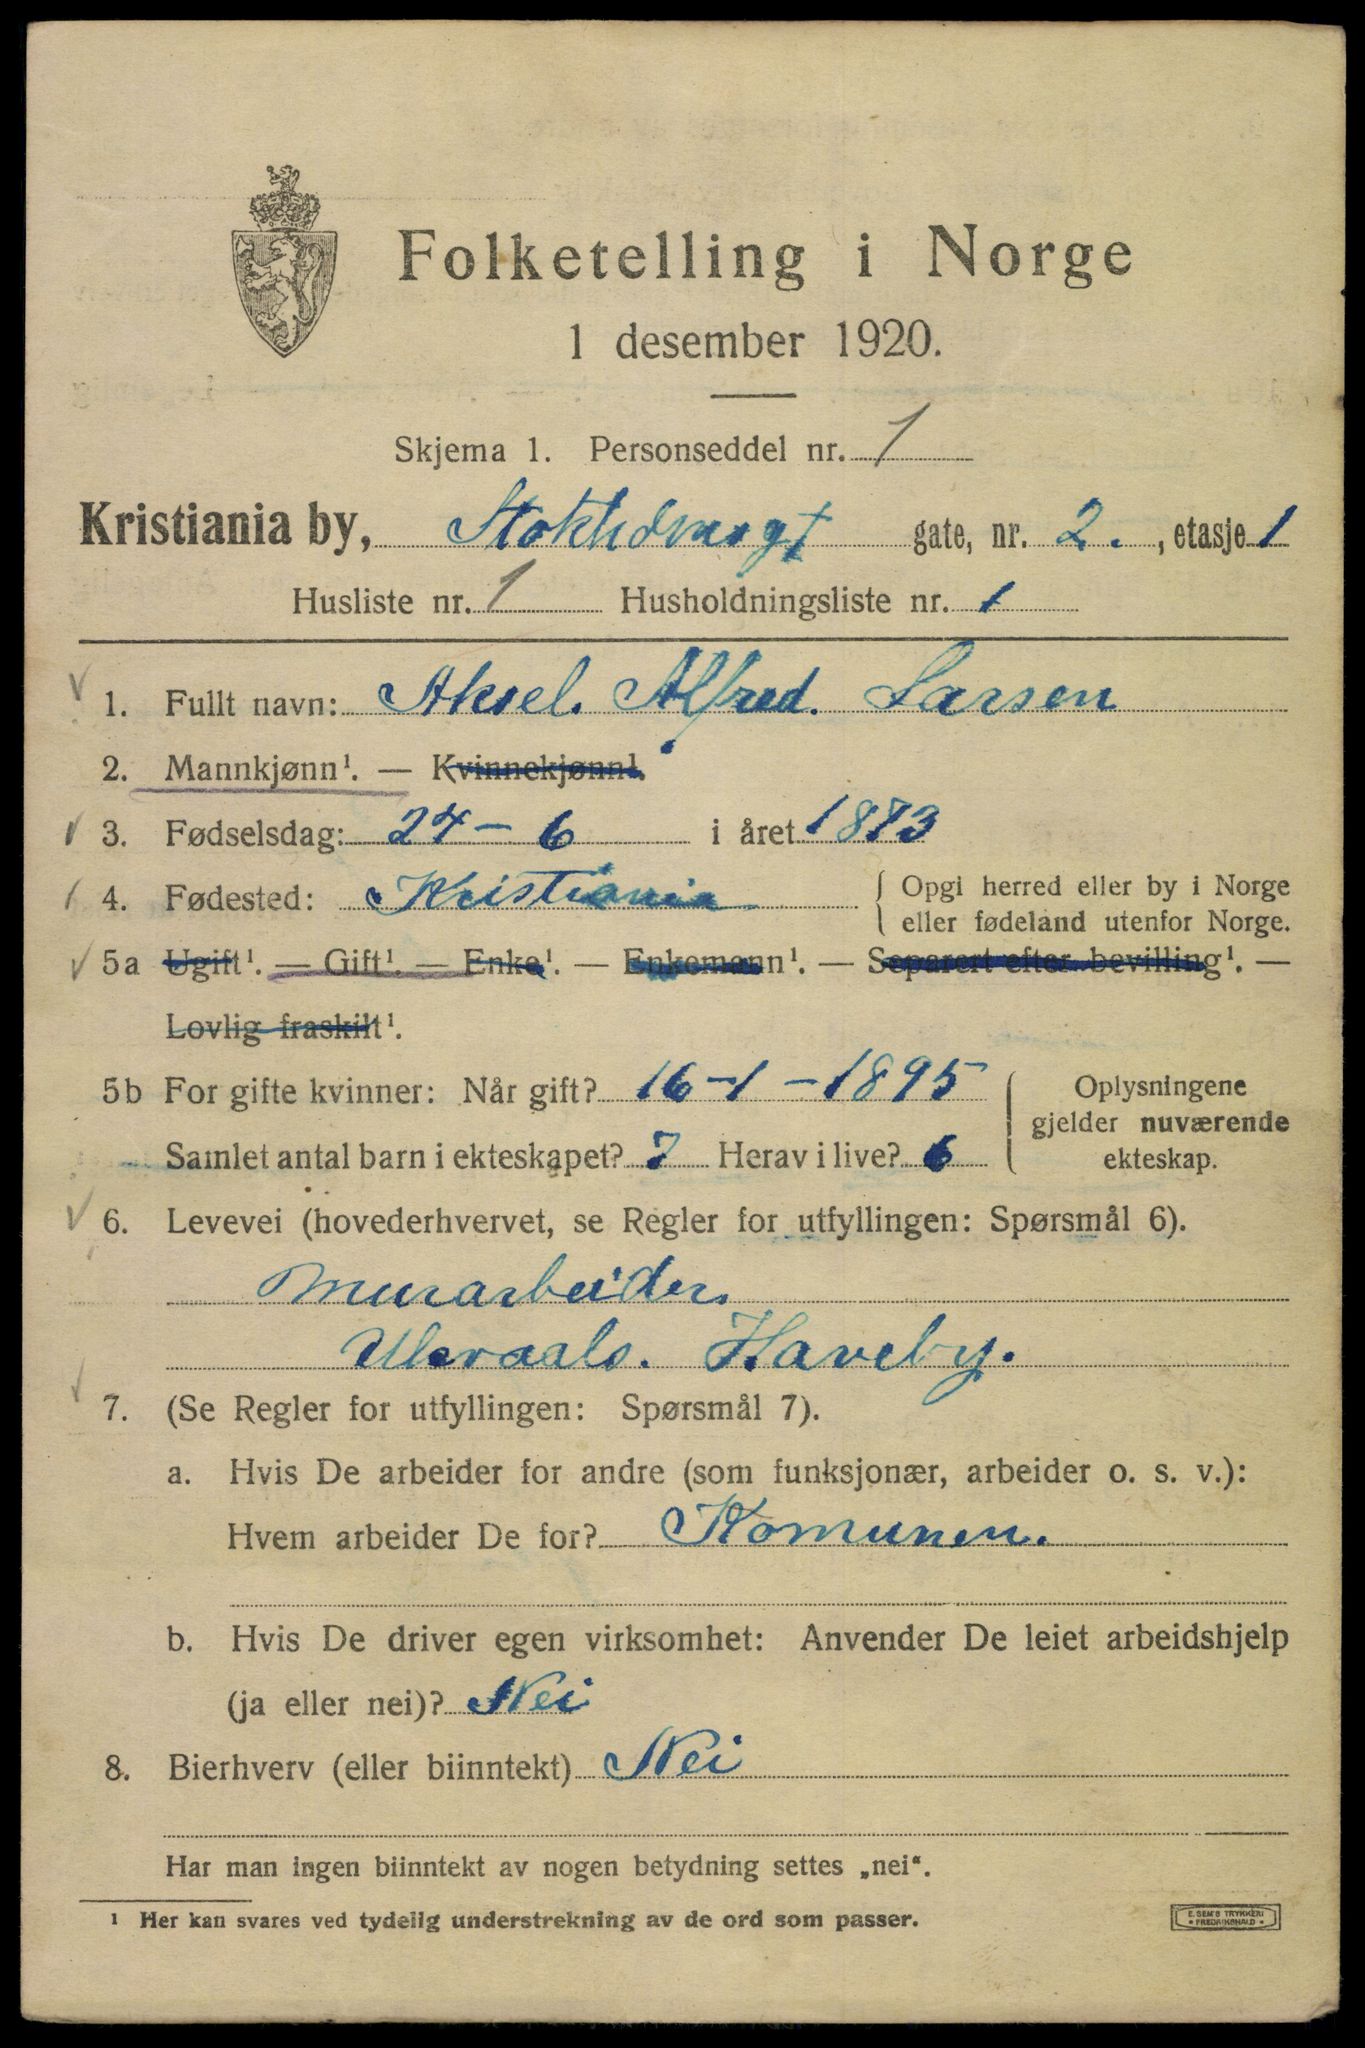 Folketelling i Norge
1 desember 1920.
Skjema 1. Personseddel nr. 1
Kristiania by, gate, nr. 2. , etasje 1
Husliste nr. 1 Husholdningsliste nr. 1
1. Fullt navn: Aksel. Alfred. Larsen
2. Mannkjønn¹. — Kvinnekjønn¹.
3. Fødselsdag: 24 – 6 i året 1873
4. Fødested: Kristiania { Opgi herred eller by i Norge
eller fødeland utenfor Norge.
5a Ugift¹. — Gift¹. — Enke¹. — Enkemann¹. — Separert efter bevilling¹. —
Lovlig fraskilt¹.
5b For gifte kvinner: Når gift? 16 – 1 – 1895 { Oplysningene
gjelder nuværende
Samlet antal barn i ekteskapet? 7 Herav i live? 6 ekteskap.
6. Levevei (hovederhvervet, se Regler for utfyllingen: Spørsmål 6).
Murarbeider.
Ulevaals. Haveby.
7. (Se Regler for utfyllingen: Spørsmål 7).
a. Hvis De arbeider for andre (som funksjonær, arbeider o. s. v.):
Hvem arbeider De for? Komunen.
b. Hvis De driver egen virksomhet: Anvender De leiet arbeidshjelp
(ja eller nei)? Nei
8. Bierhverv (eller biinntekt) Nei
Har man ingen biinntekt av nogen betydning settes „nei“.
¹ Her kan svares ved tydelig understrekning av de ord som passer.
E. SEM'S TRYKKERI
• FREDRIKSHALD •